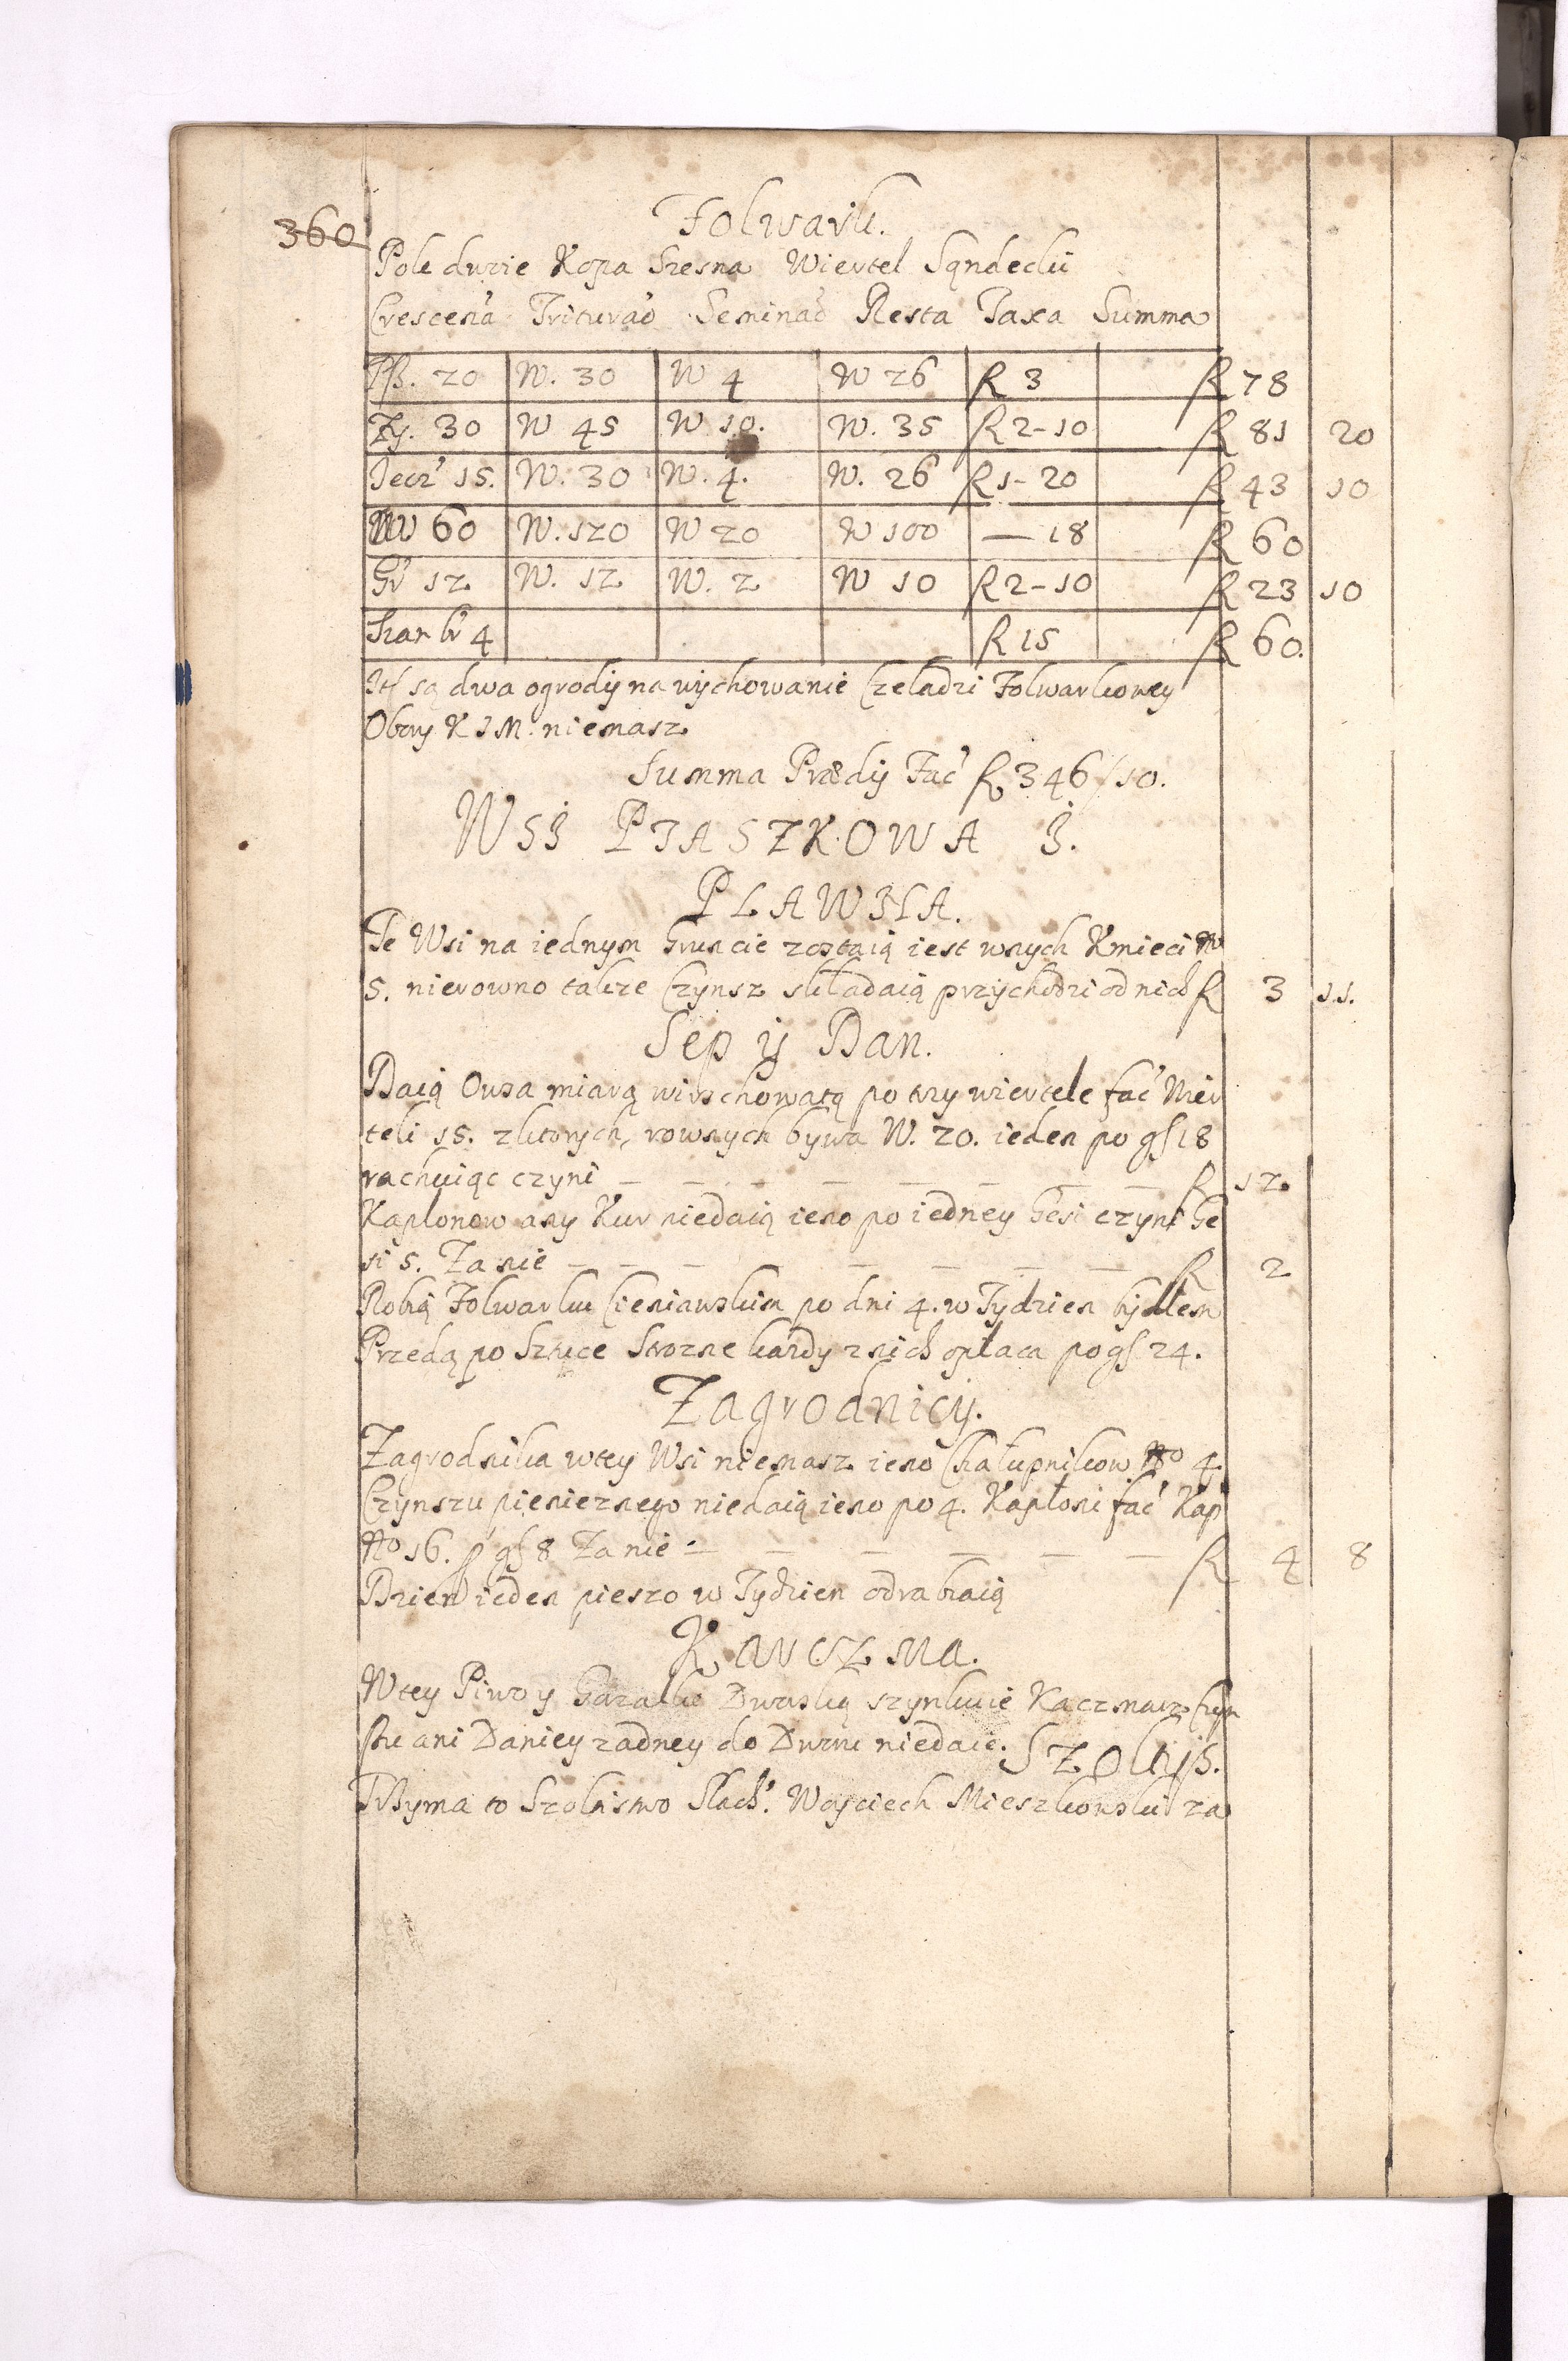 360
Folwark.
Pole duzie Kopa Szesna Wiertel Sąndecki
Crescen'a Triturao Seminao Resta Taxa Summa
Pß. 20 W. 30 W 4 W 26 R 3 R 78
Zy. 30 W 45 W 10. W. 35 R 2-10 R 81 20
Jecz' 15. W. 30 W. 4. W. 26 R 1-20 R 43 10
Ow 60 W. 120 W 20 W 100 — 18 R 60
Gr' 12 W. 12 W. 2 W 10 R 2-10 R 23 10
Szar br' 4 R 15 R 60.
Itt są dwa ogrody na wychowanie Czeladzi Folwarkowey
Obory K J M: niemasz
Summa Prædij Fac' R 346/10.
WSI PTASZKOWA I.
PLAWNA.
Te Wsi na iednym Gruncie zostaią iest wnych Kmieci No
5. nierowno takze Czynsz składaią przychodzi od nich R 3 11.
Sep ij Dan.
Daią Owsa miarą wirschowatą po trzy wiertele fac' Wier
teli 15. z ktorych, rownych bywa W. 20. ieden po gs 18
rachuiąc czyni — — — — — — — R 12.
Kaplonow any Kur niedaią ieno po iedney Gęsi czyni Gę
si 5. Za nie — — — — — — — R 2
Robią Folwarku Cieniawskim po dni 4. w Tydzien bydłem
Przedą po Sztuce Strozne kazdy z nich opłaca po gs 24.
Zagrodnicy.
Zagrodnika wtey Wsi niemasz ieno Chałupnikow No 4
Czynszu pienieznego niedaią ieno po 4. Kapłoni fac' Kap'
No 16. p gs 8 Za nie — — — — — — R 4 8
Dzien ieden pieszo w Tydzien odrabiaią
Karczma.
Wtey Piwo y Gorzałkę Dworską szynkuie Kaczmarz Czyn
szu ani Daniey zadney do Dworu niedaie. Szoltys.
Trzyma to Szoltstwo Slach'. Woyciech Mieszkowski za